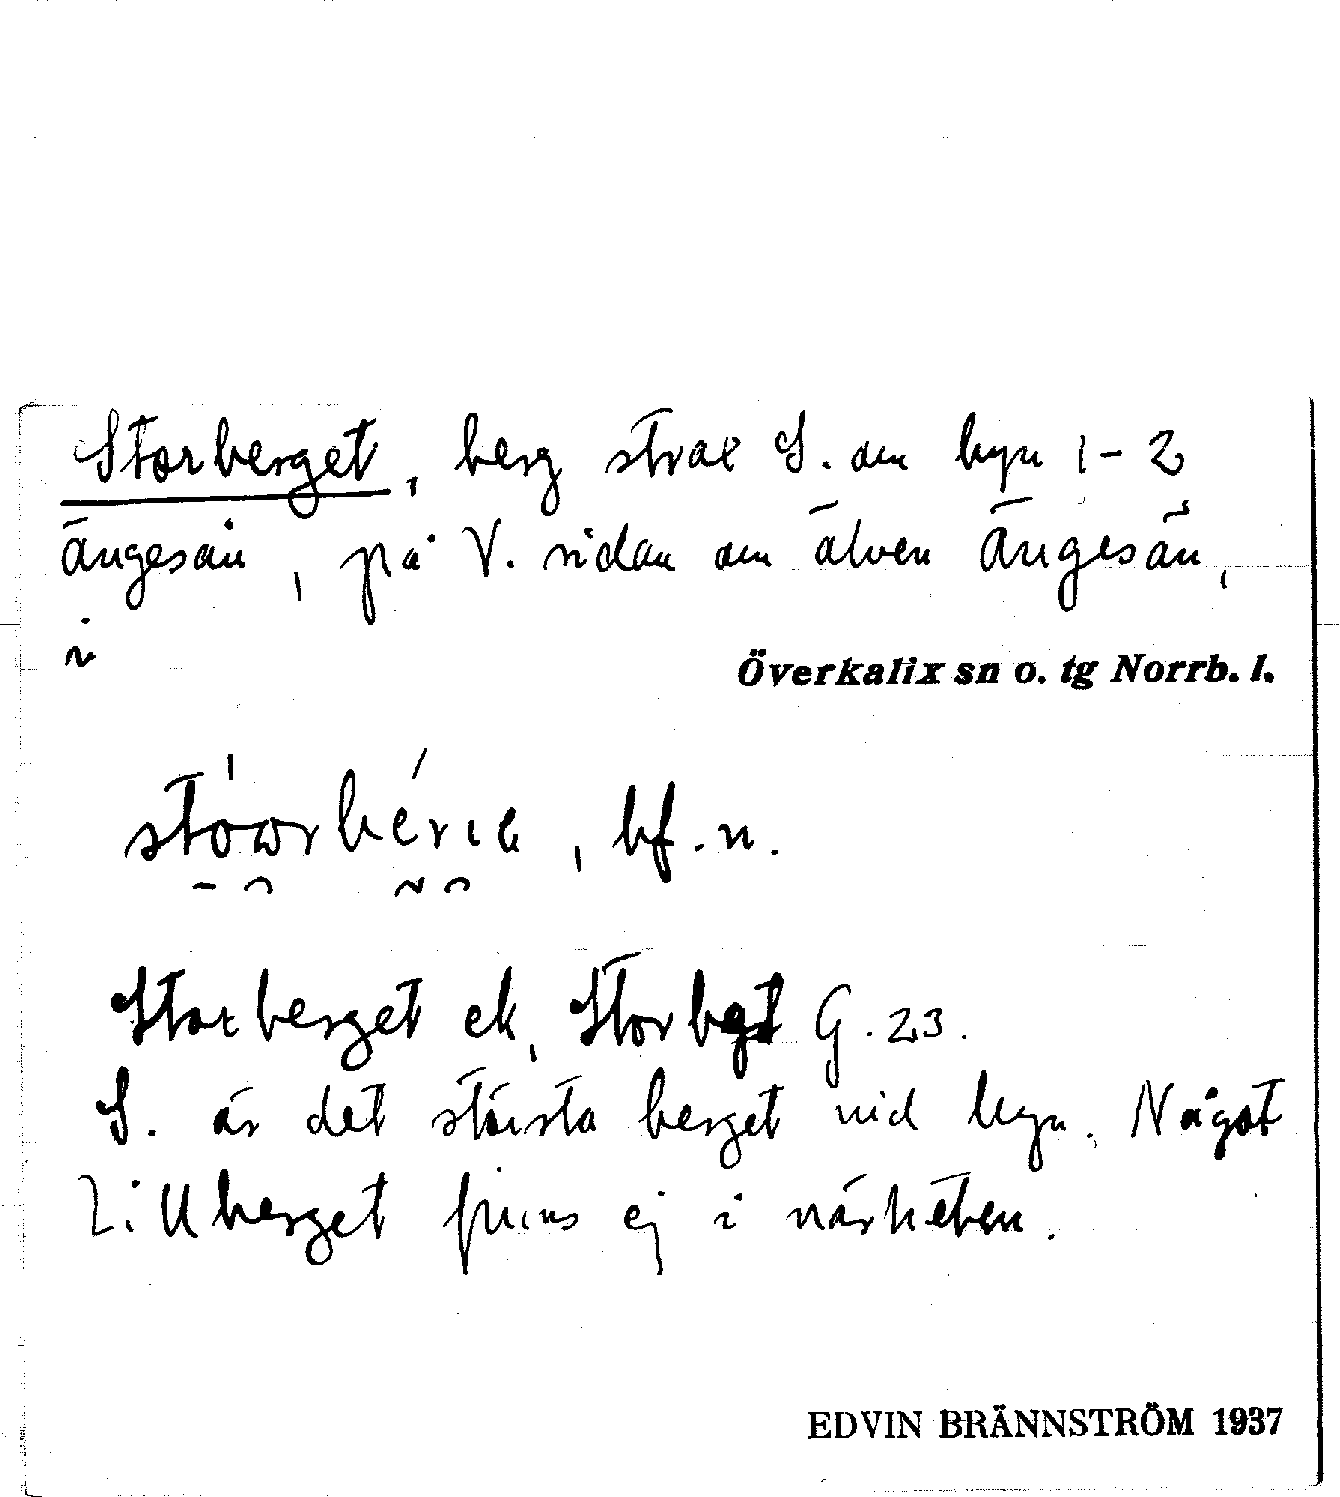 Storberget, berg strax S. om byn 1-2
ängesån, på V. sidan om älven Ängesån,
i
Överkalix sn o. tg Norrb. l.
bf. n.
Storberget ek, Storbgt G. 23.
S. är det största berget vid byn. Något
Lillberget finns ej i närheten.
EDVIN BRÄNNSTRÖM 1937